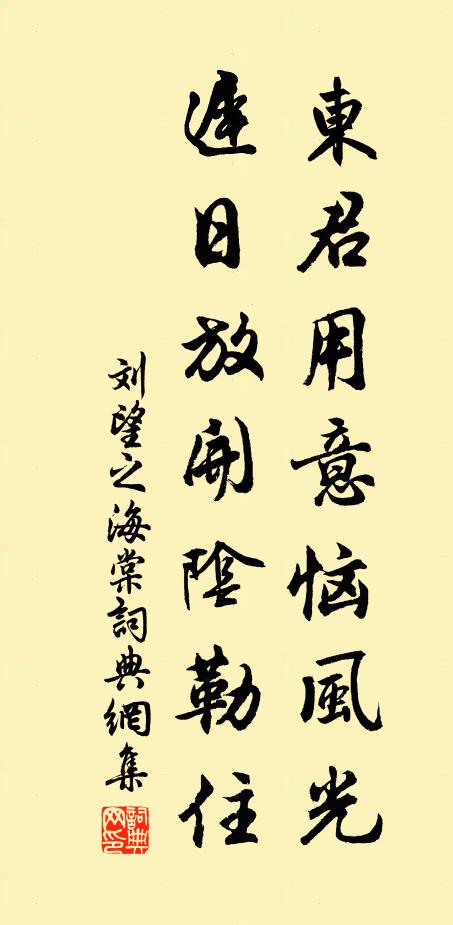 東君用意恼風光
遲日放開陰勒住
刘望之海棠詞典網集
詞典网印